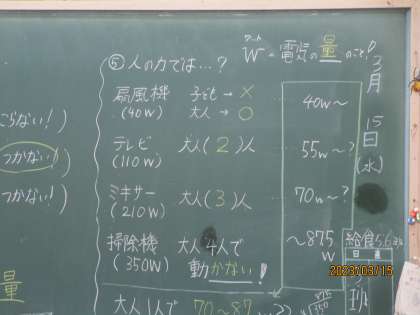 ワット
W = 電気の量のこと!
⑤人の力では…?
扇風機 子ども → ×
(40W) 大人 → ○ … 40W~
テレビ 大人(2)人 … 55W~?
(110W)
ミキサー 大人(3)人 … 70W~?
(210W)
掃除機 大人4人で ~875W
(350W) 動かない!
大人1人で 70~87
875
350
こらない!)
つかない!)
つかない!)
量
3月
15日
(水)
給食5,6
日直
2023/03/15